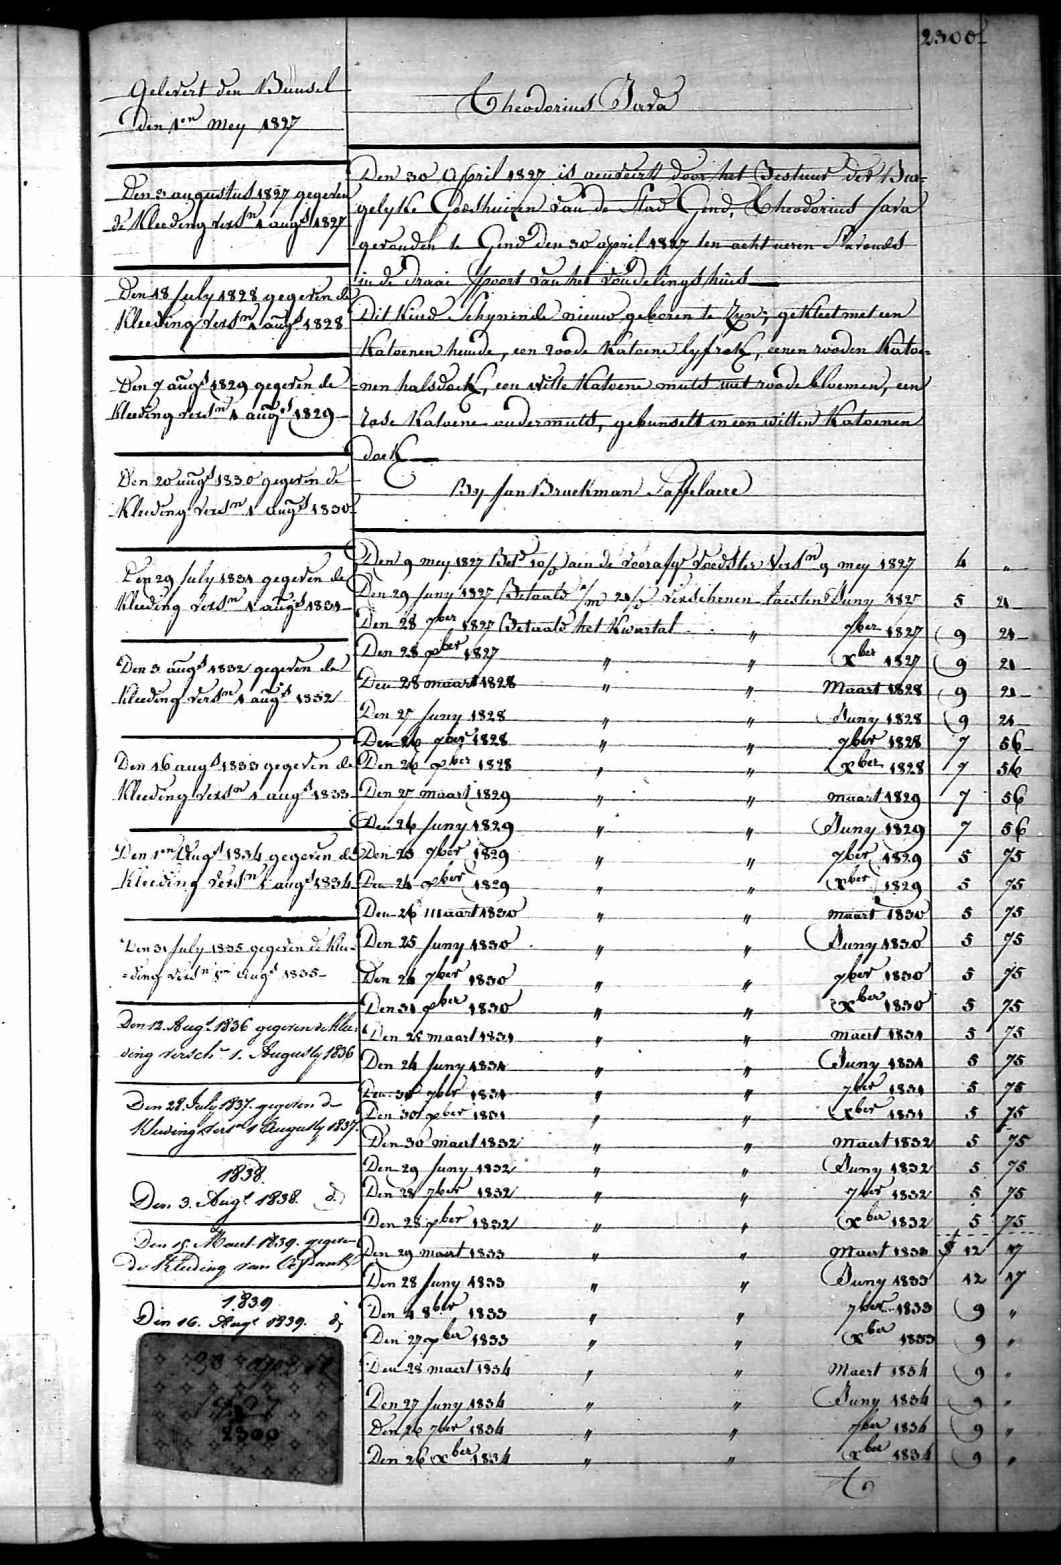 2300
Gelevert den Bunsel
Den 1en Mey 1827
Den 3 augustus 1827 gegeven
de Kleeding versn 1 augs 1827
Den 18 July 1828 gegeven de
Kleeding versn 1 augs 1828
Den 7 augs 1829 gegeven de
Kleeding versn 1 augs 1829
Den 20 augs 1830 gegeven de
Kleeding versn 1 augs 1830
Den 29 July 1831 gegeven de
Kleeding versn 1 augs 1831
Den 3 augs 1832 gegeven de
Kleeding versn 1 augs 1832
Den 16 augs 1833 gegeven de
Kleeding versn 1 augs 1833
Den 1en Augs 1834 gegeven de
Kleeding versn 1 augs 1834
Den 31 July 1835 gegeven de Klee-
=ding versn 1en Augs 1835
Den 12. Augt 1836 gegeven de klee-
ding versch n 1. Augusty 1836
Den 28. July 1837. gegeven de
Kleeding versn 1 Augusty 1837.
1838.
Den 3. Augt 1838. d
Den 15. Maert 1839. gegeven
de Kleeding van
1839
Den 16. Augt 1839. d
30 april
1827
2300
Theodorius Java
Den 30 April 1827 is door het Bestuur der Bur=
gelyke Godshuizen van de Stad Gend, Theodorius Java
gevonden te Gend den 30 april 1827 ten acht ueren S'avonds
in de draai Spoort van het vondelingshuis
Dit Kind Schynende nieuw geboren te Zyn; gekleet met een
Katoenen hemde, een roode Katoene lyfrok, eenen rooden Katoe-
=nen halsdoek, een witte Katoene muts met roode bloemen, een
rode Katoene ondermuts, gebunselt in een witten Katoenen
doek
By Jan Bruckman Taffelaere
Den 9 mey 1827 Bets 10/ aen de voorafge voedster versn 9 mey 1827 4 "
Den 29 Juny 1827 Betaald verschenen laesten Juny 1827 5 21
Den 28 7ber 1827 Betaald het Kwartal " 7ber 1827 9 21
Den 28 xber 1827 " " xber 1827 9 21
Den 28 maart 1828 " " Maart 1828 9 21
Den 27 Juny 1828 " " Juny 1828 9 21
Den 26 7ber 1828 " " 7ber 1828 7 56
Den 26 xber 1828 " " xber 1828 7 56
Den 27 maart 1829 " " maart 1829 7 56
Den 26 Juny 1829 " " Juny 1829 7 56
Den 25 7ber 1829 " " 7ber 1829 5 75
Den 24 xber 1829 " " xber 1829 5 75
Den 26 maart 1830 " " maart 1830 5 75
Den 25 Juny 1830 " " Juny 1830 5 75
Den 24 7ber 1830 " " 7ber 1830 5 75
Den 31 xber 1830 " " xber 1830 5 75
Den 25 maart 1831 " " maert 1831 5 75
Den 24 Juny 1831 " " Juny 1831 5 75
Den 7ber 1831 " " 7ber 1831 5 75
Den 30 xber 1831 " " xber 1831 5 75
Den 30 maert 1832 " " Maert 1832 5 75
Den 29 Juny 1832 " " Juny 1832 5 75
Den 28 7ber 1832 " " 7ber 1832 5 75
Den 28 xber 1832 " " xber 1832 5 75
Den 29 maert 1833 " " Maert 1833 f 12 17
Den 28 Juny 1833 " " Juny 1833 12 17
Den 4 8ber 1833 " " 7ber 1833 9 "
Den 27 xber 1833 " " xber 1833 9 "
Den 28 maert 1834 " " Maert 1834 9 "
Den 27 Juny 1834 " " Juny 1834 9 "
Den 26 7ber 1834 " " 7ber 1834 9 "
Den 26 xber 1834 " " xber 1834 9 "